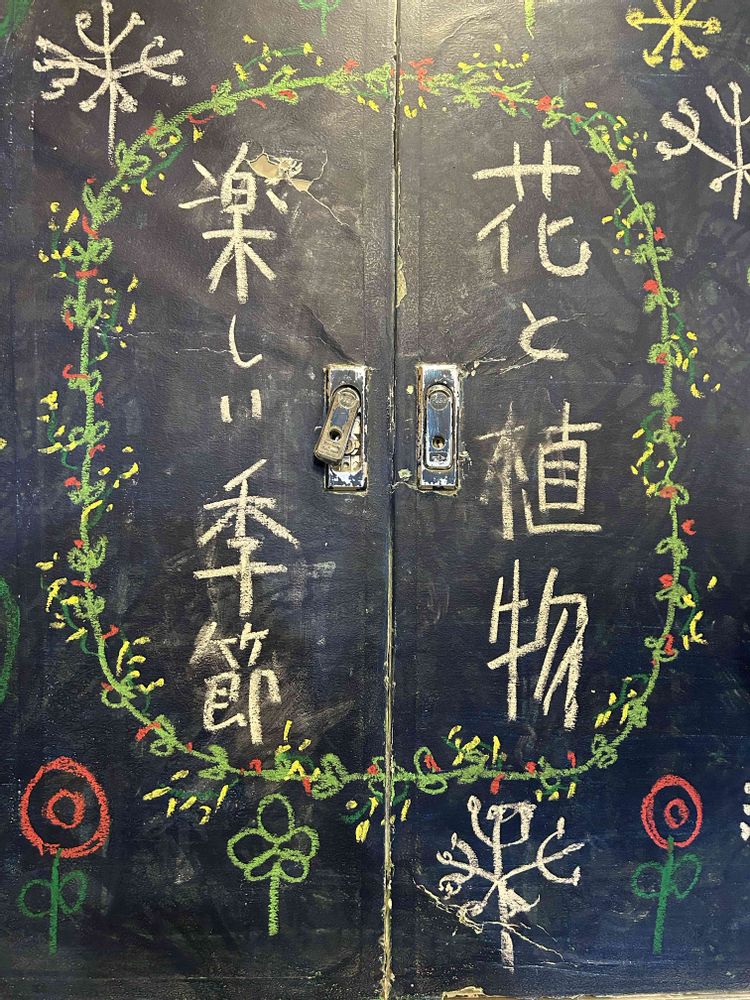 花と植物
楽しい季節